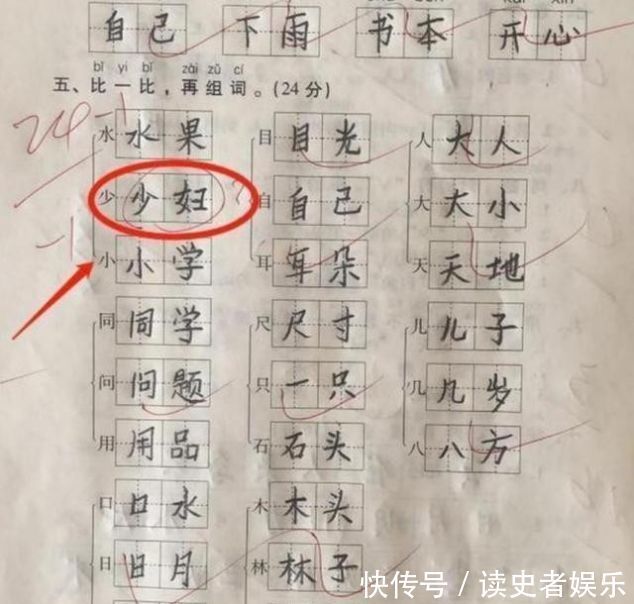 自己 下雨 书本 开心
bǐ yi bǐ zài zǔ cí
五、比一比,再组词。(24分)
24-1
水 水果 目 目光 人 大人
少 少妇 自 自己 大 大小
-1
小 小学 耳 耳朵 天 天地
同 同学 尺 尺寸 儿 儿子
问 问题 只 一只 几 几岁
用 用品 石 石头 八 八方
口 口水 木 木头
日 日月 林 林子
快传号/读史者娱乐